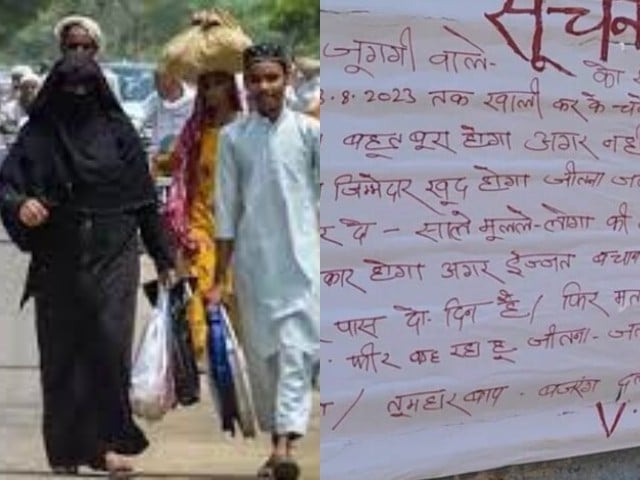 सूचना
जूगगी वाले- को
.8.2023 तक खाली कर के
बहूत बूरा होगा अगर नही
जिम्मेदार खूद होगा जीतना
दे - साले मूलले-लोगो की
कार होगा अगर ईज्जत बचाना
पास दो दिन है/ फिर मत
फीर कह रहा हू जीतना-
/ तूमहार बाप बजरंग दल
V.